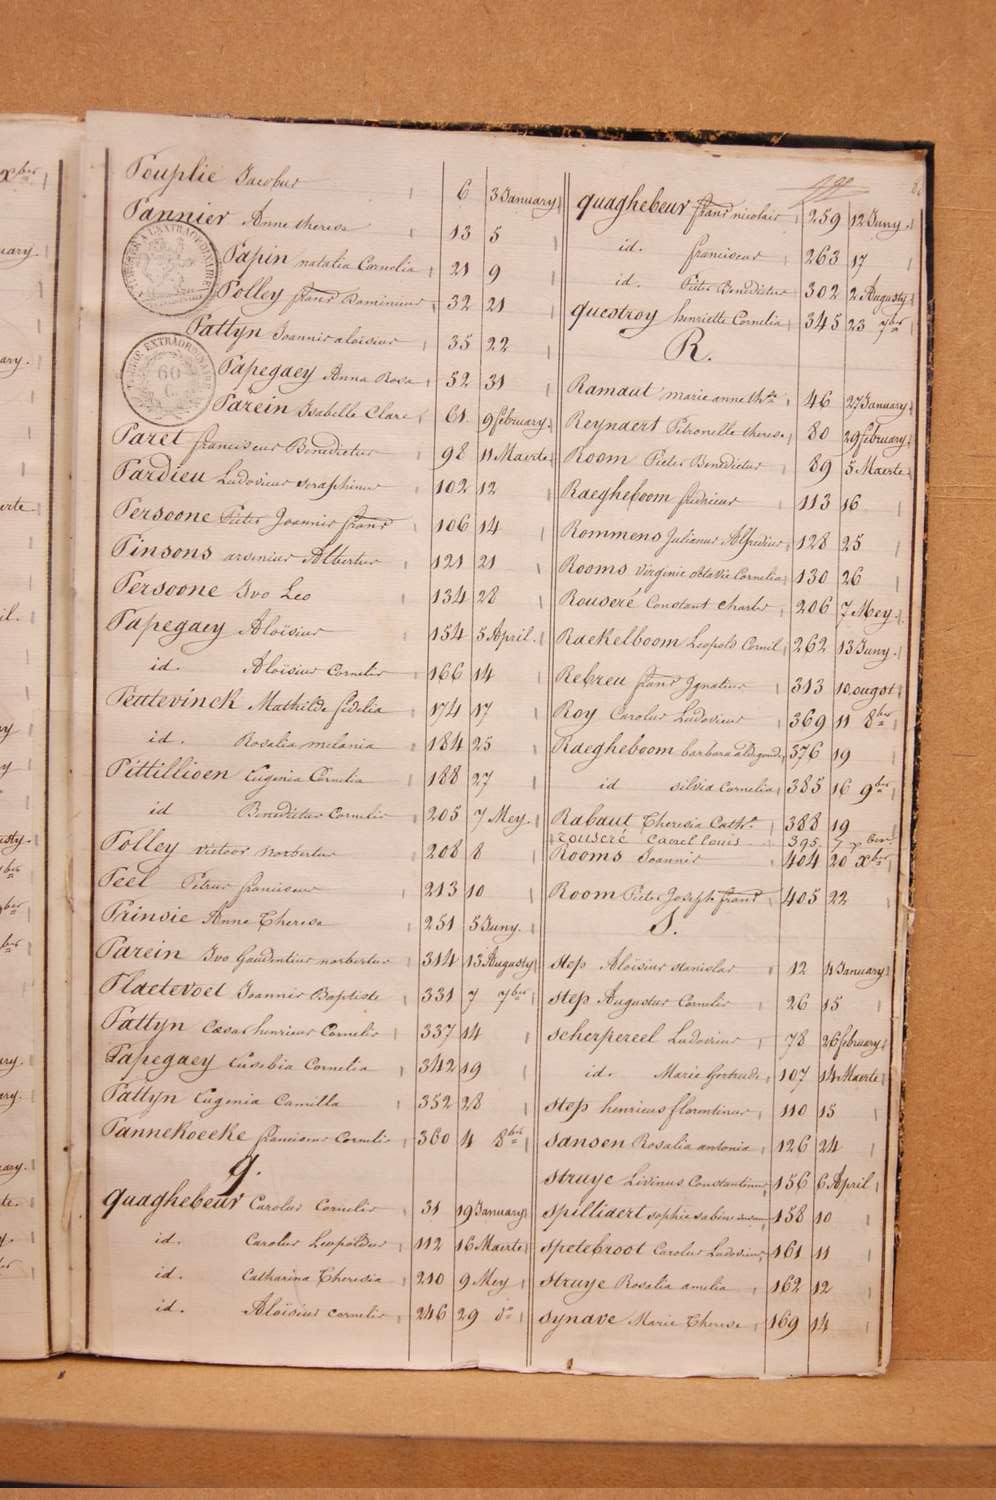 Peuplie Jacobus 6 3 January
Pannier Anne therese 13 5
Papin natalia Cornelia 21 9
Polley frans Dominicus 32 21
Pattyn Joannis aloisius 35 22
Papegaey Anna Rosa 52 31
Parein Isabelle Clare 61 9 february
Paret franciscus Benedictus 98 11 Maerte
Pardieu Ludovicus seraphinus 102 12
Persoone Pieter Joannis frans 106 14
Pinsons arsenius Albertus 121 21
Persoone Ivo Leo 134 28
Papegaey Aloïsius 154 5 April
id. Aloïsius Cornelis 166 14
Mathilde fidelia 174 17
id. Rosalia melania 184 25
Pittillioen Eugenia Cornelia 188 27
id Benedictus Cornelis 205 7 Mey
Polley victoor norbertus 208 8
Peel Petrus franciscus 213 10
Prinsie Anne Therese 251 5 Juny
Parein Ivo Gaudentius norbertus 314 13 Augusty
Plaetevoet Joannis Baptiste 331 7 7bre
Pattyn Cæsar henricus Cornelis 337 14
Papegaey Eusebia Cornelia 342 19
Pattyn Eugenia Camilla 352 28
Pannekoecke franciscus Cornelis 360 4 8bre
q.
quaghebeur Carolus Cornelis 31 19 January
id. Carolus Leopoldus 112 16 Maerte
id. Catharina Theresia 210 9 Mey
id. Aloïsius cornelis 246 29 do
quaghebeur frans nicolais 259 12 Juny
id. franciscus 263 17
id. Pieter Benedictus 302 2 Augusty
questroy henriette Cornelia 345 23 7bre
R.
Ramaut marie anne thse 46 27 January
Reynaert Petronelle therese 80 29 february
Room Pieter Benedictus 89 5 Maerte
Raegheboom fredricus 113 16
Rommens Julianus Alfredius 128 25
Rooms virginie octavie Cornelia 130 26
Rouseré Constant charles 206 7 Mey
Raekelboom Leopold Cornil 262 13 Juny
Rebreu frans Ignatius 313 10 ougost
Roy Carolus Ludovicus 369 11 8bre
Raegheboom barbara aldegonde 376 19
id silvia cornelia 385 16 9bre
Rabaut Theresia Cath. 388 19
rouseré Carel Louis 395
Rooms Joannis 404 20 Xbre
Room Pieter Joseph frans 405 22
S.
step Aloïsius stanislas 12 4 January
step Augustus Cornelis 26 15
scherpereel Ludovicus 78 26 february
id. Marie Gertrude 107 14 Maerte
step henricus florentinus 110 15
sansen Rosalia antonia 126 24
struye Livinus Constantinus 156 6 April
spilliaert sophie sabine 158 10
spetebroot Carolus Ludovicus 161 11
struye Rosalia amelia 162 12
synave Marie Therese 169 14